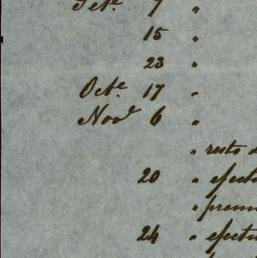 Set.e 7 "
15 "
23 "
Oct.e 17 "
Nov.e 6 "
" resto d
20 " efect
" prem
24 " efectu